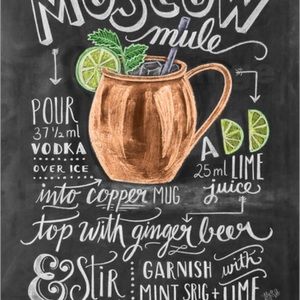 MOSCOW
mule
POUR
37 ½ ml
VODKA
OVER ICE
ADD
25 ml LIME
juice
into copper MUG
top with ginger beer
& Stir
GARNISH with
MINT SRIG + LIME